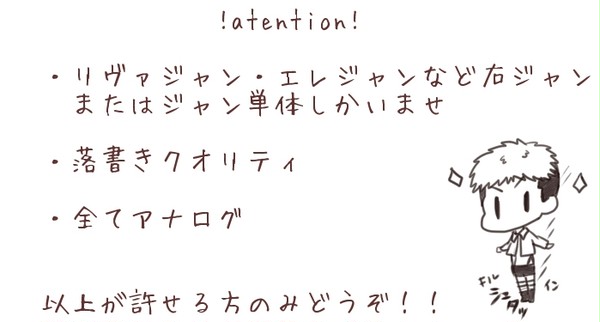 !atention!
・リヴァジャン・エレジャンなど右ジャン
またはジャン単体しかいませ
・落書きクオリティ
・全てアナログ
以上が許せる方のみどうぞ！！
シュタッ
イン